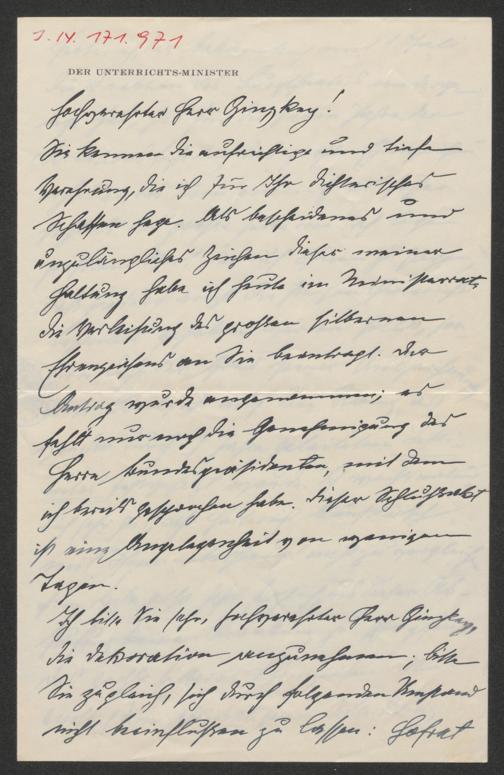 J.N. 171.971
DER UNTERRICHTS-MINISTER
Hochverehrter Herr Ginzkey!
Sie kennen die aufrichtige und tiefe
Verehrung, die ich für Ihr dichterisches
Schaffen hege. Als bescheidenes und
unzulängliches Zeichen dieser meiner
Haltung habe ich heute im Ministerrate
die Verleihung des großen silbernen
Ehrenzeichens an Sie beantragt. Der
Antrag wurde angenommen; es
fehlt nur noch die Genehmigung des
Herrn Bundespräsidenten, mit dem
ich bereits gesprochen habe. Dieser Schlußakt
ist eine Angelegenheit von wenigen
Tagen.
Ich bitte Sie sehr, hochverehrter Herr Ginzkey,
die Dekoration anzunehmen; bitte
Sie zugleich, sich durch folgenden Umstand
nicht beeinflussen zu lassen: Hofrat